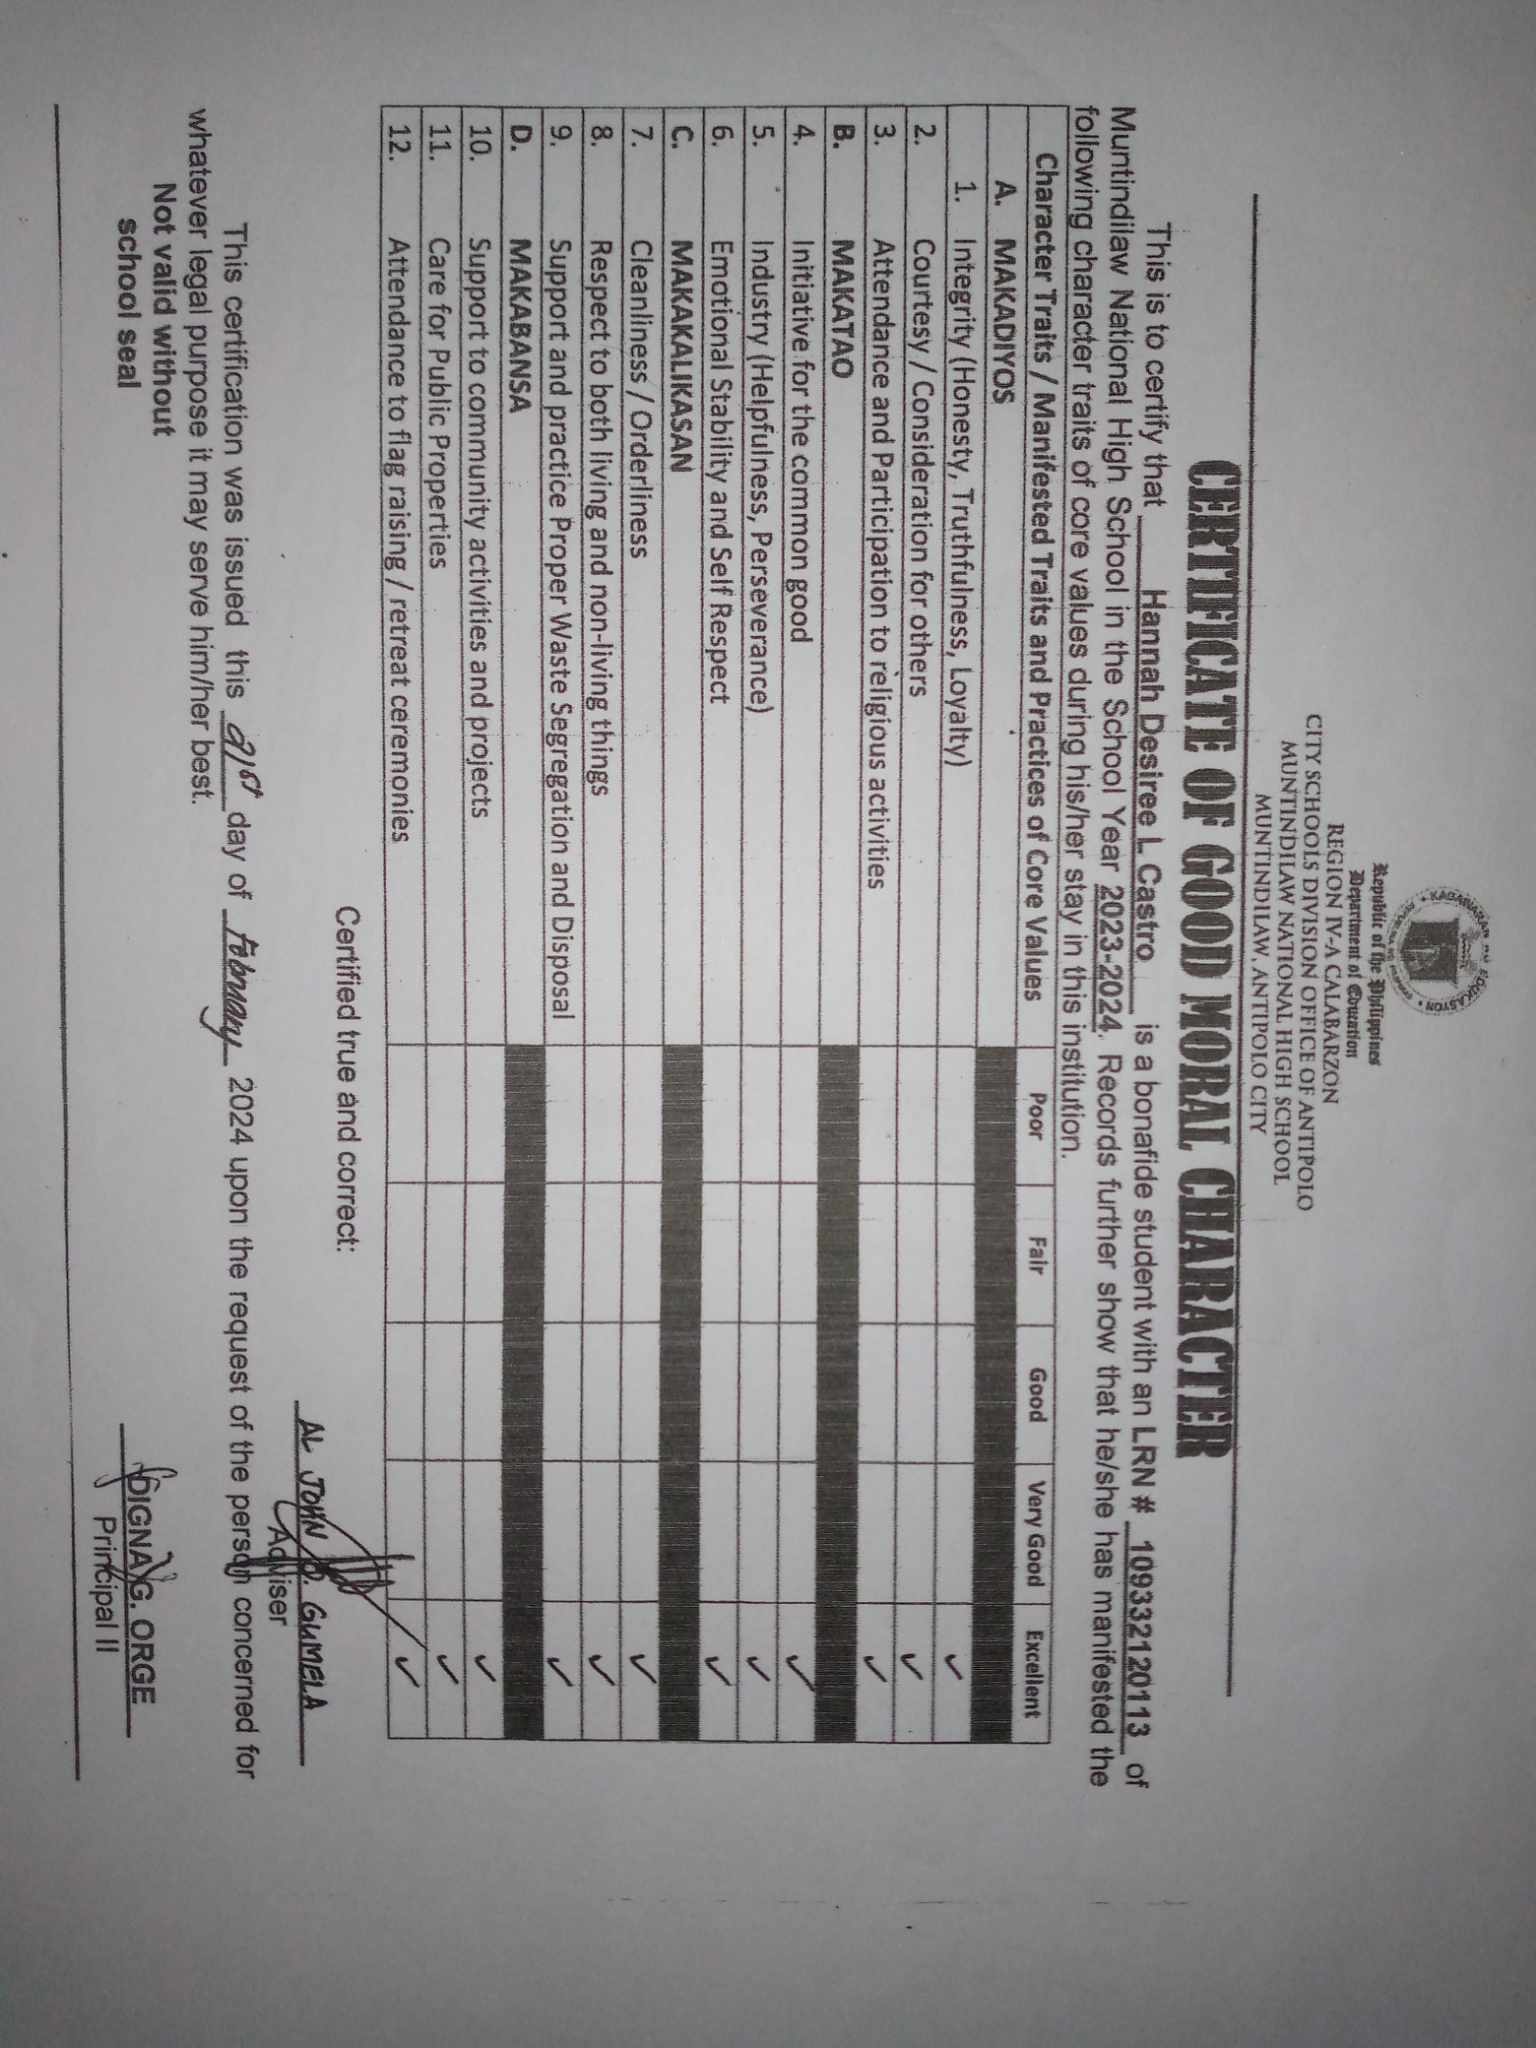 Republic of the Philippines
Department of Education
REGION IV-A CALABARZON
CITY SCHOOLS DIVISION OFFICE OF ANTIPOLO
MUNTINDILAW NATIONAL HIGH SCHOOL
MUNTINDILAW, ANTIPOLO CITY
CERTIFICATE OF GOOD MORAL CHARACTER
This is to certify that Hannah Desiree L Castro is a bonafide student with an LRN # 109332120113 of
Muntindilaw National High School in the School Year 2023-2024. Records further show that he/she has manifested the
following character traits of core values during his/her stay in this institution.
Character Traits / Manifested Traits and Practices of Core Values Poor Fair Good Very Good Excellent
A. MAKADIYOS
1. Integrity (Honesty, Truthfulness, Loyalty) ✓
2. Courtesy / Consideration for others ✓
3. Attendance and Participation to religious activities ✓
B. MAKATAO
4. Initiative for the common good ✓
5. Industry (Helpfulness, Perseverance) ✓
6. Emotional Stability and Self Respect ✓
C. MAKAKALIKASAN
7. Cleanliness / Orderliness ✓
8. Respect to both living and non-living things ✓
9. Support and practice Proper Waste Segregation and Disposal ✓
D. MAKABANSA
10. Support to community activities and projects ✓
11. Care for Public Properties ✓
12. Attendance to flag raising / retreat ceremonies ✓
Certified true and correct:
AL JOHN D. GUMELA
Adviser
This certification was issued this 21st day of February 2024 upon the request of the person concerned for
whatever legal purpose it may serve him/her best.
Not valid without
school seal
DIGNA G. ORGE
Principal II